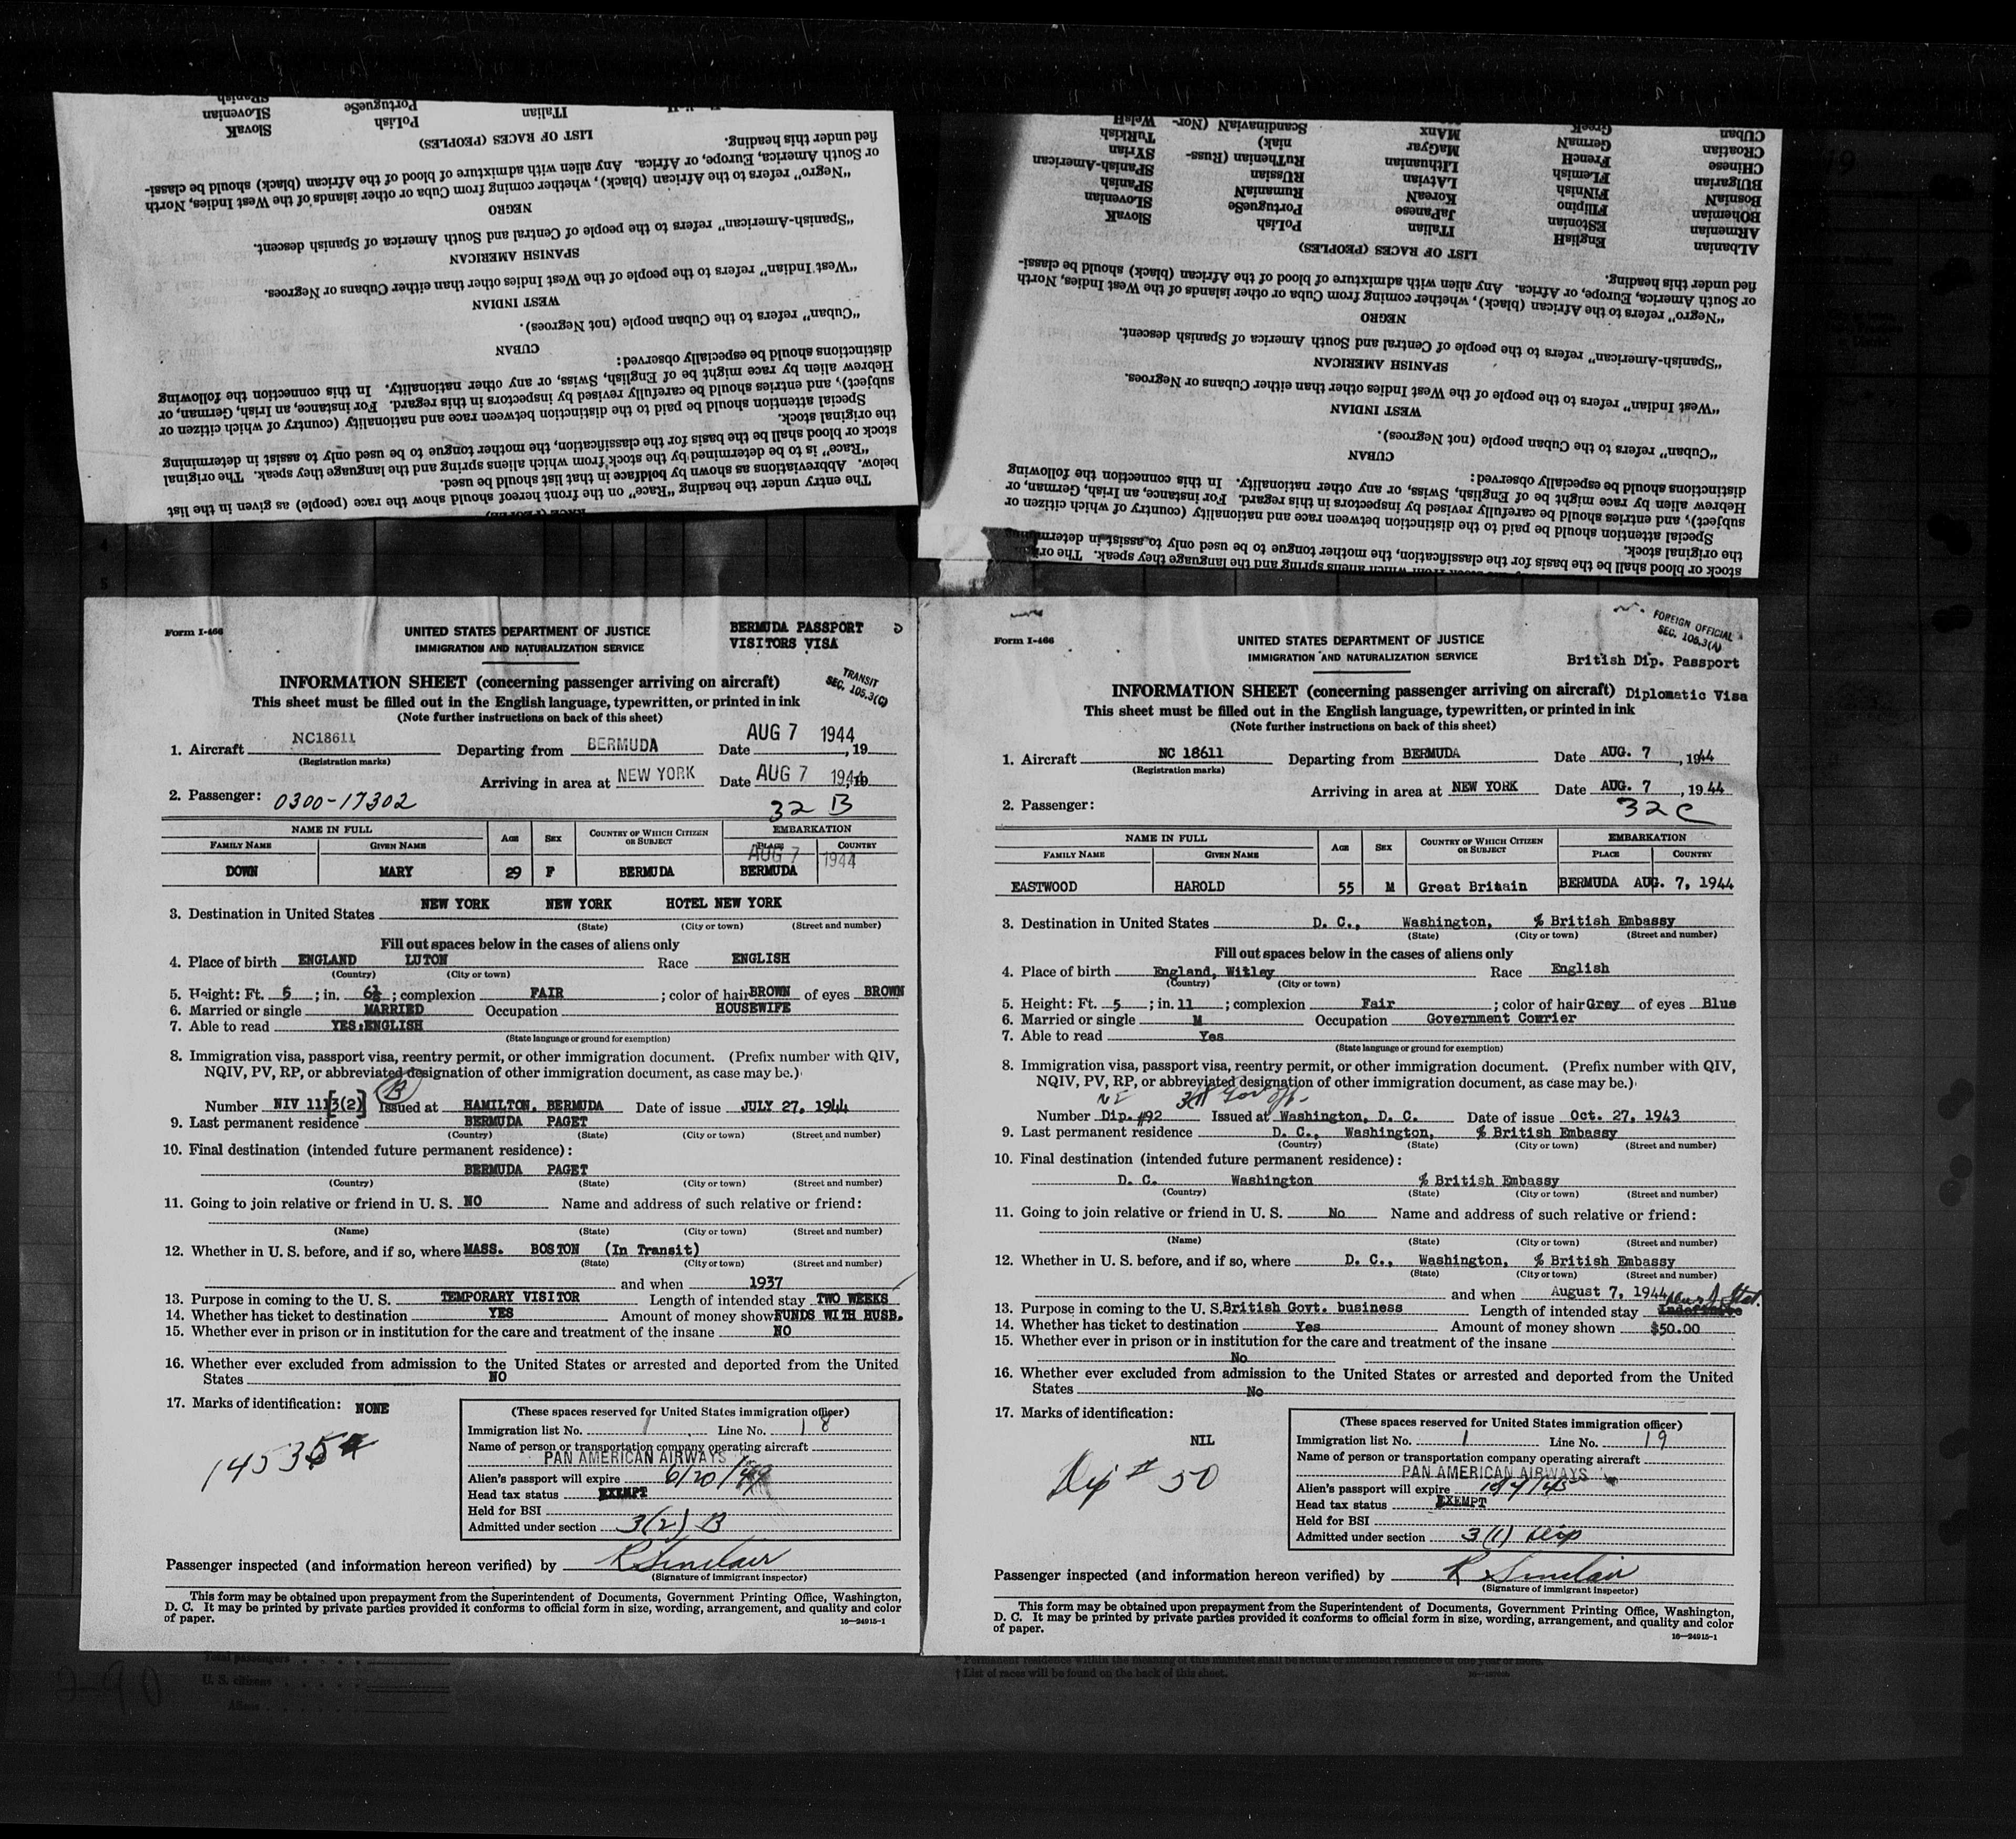 SPanish
SLovenian
SlovaK
PortuguеSe
PoLish
ITalian
LIST OF RACES (PEOPLES)
fied under this heading.
or South America, Europe, or Africa. Any alien with admixture of blood of the African (black) should be classi-
"Negro" refers to the African (black), whether coming from Cuba or other islands of the West Indies, North
NEGRO
"Spanish-American" refers to the people of Central and South America of Spanish descent.
SPANISH AMERICAN
"West Indian" refers to the people of the West Indies other than either Cubans or Negroes.
WEST INDIAN
"Cuban" refers to the Cuban people (not Negroes).
CUBAN
distinctions should be especially observed:
Hebrew alien by race might be of English, Swiss, or any other nationality. In this connection the following
subject), and entries should be carefully revised by inspectors in this regard. For instance, an Irish, German, or
Special attention should be paid to the distinction between race and nationality (country of which citizen or
the original stock.
stock or blood shall be the basis for the classification, the mother tongue to be used only to assist in determining
"Race" is to be determined by the stock from which aliens spring and the language they speak. The original
below. Abbreviations as shown by boldface in that list should be used.
The entry under the heading "Race" on the front hereof should show the race (people) as given in the list
WelsH Scandinavian (Nor- MAnx GreeK CUban
TuRkish niak) MaGyar GermaN CRoatian
SYrian RuThenian (Russ- LIthuanian FrencH CHinese
SPanish-American RUssian LAtvian FLemish BUlgarian
SPanish RumaniaN KoreaN FINnish BosniaN
SLovenian PortugueSe JaPanese Filipino BOhemian
SlovaK PoLish ITalian EStonian ARmenian
EnglisH ALbanian
LIST OF RACES (PEOPLES)
fied under this heading.
or South America, Europe, or Africa. Any alien with admixture of blood of the African (black) should be classi-
"Negro" refers to the African (black), whether coming from Cuba or other islands of the West Indies, North
NEGRO
"Spanish-American" refers to the people of Central and South America of Spanish descent.
SPANISH AMERICAN
"West Indian" refers to the people of the West Indies other than either Cubans or Negroes.
WEST INDIAN
"Cuban" refers to the Cuban people (not Negroes).
CUBAN
distinctions should be especially observed:
Hebrew alien by race might be of English, Swiss, or any other nationality. In this connection the following
subject), and entries should be carefully revised by inspectors in this regard. For instance, an Irish, German, or
Special attention should be paid to the distinction between race and nationality (country of which citizen or
the original stock.
stock or blood shall be the basis for the classification, the mother tongue to be used only to assist in determining
from which aliens spring and the language they speak. The
Form I-466
UNITED STATES DEPARTMENT OF JUSTICE
IMMIGRATION AND NATURALIZATION SERVICE
BERMUDA PASSPORT
VISITORS VISA
TRANSIT
SEC. 105.3(C)
INFORMATION SHEET (concerning passenger arriving on aircraft)
This sheet must be filled out in the English language, typewritten, or printed in ink
(Note further instructions on back of this sheet)
1. Aircraft NC18611 Departing from BERMUDA Date AUG 7 1944, 19
(Registration marks)
Arriving in area at NEW YORK Date AUG 7 1944, 19
2. Passenger: 0300-17302 32 B
NAME IN FULL AGE SEX COUNTRY OF WHICH CITIZEN OR SUBJECT EMBARKATION
FAMILY NAME GIVEN NAME PLACE COUNTRY
AUG 7 1944
DOWN MARY 29 F BERMUDA BERMUDA
3. Destination in United States NEW YORK NEW YORK HOTEL NEW YORK
(State) (City or town) (Street and number)
Fill out spaces below in the cases of aliens only
4. Place of birth ENGLAND LUTON Race ENGLISH
(Country) (City or town)
5. Height: Ft. 5; in. 6½; complexion FAIR; color of hair BROWN of eyes BROWN
6. Married or single MARRIED Occupation HOUSEWIFE
7. Able to read YES; ENGLISH
(State language or ground for exemption)
8. Immigration visa, passport visa, reentry permit, or other immigration document. (Prefix number with QIV,
NQIV, PV, RP, or abbreviated designation of other immigration document, as case may be.)
B
Number NIV 111[3(2)] Issued at HAMILTON, BERMUDA Date of issue JULY 27, 1944
9. Last permanent residence BERMUDA PAGET
(Country) (State) (City or town) (Street and number)
10. Final destination (intended future permanent residence):
BERMUDA PAGET
(Country) (State) (City or town) (Street and number)
11. Going to join relative or friend in U. S. NO Name and address of such relative or friend:
(Name) (State) (City or town) (Street and number)
12. Whether in U. S. before, and if so, where MASS. BOSTON (In Transit)
(State) (City or town) (Street and number)
and when 1937
13. Purpose in coming to the U. S. TEMPORARY VISITOR Length of intended stay TWO WEEKS
14. Whether has ticket to destination YES Amount of money shown FUNDS WITH HUSB.
15. Whether ever in prison or in institution for the care and treatment of the insane NO
16. Whether ever excluded from admission to the United States or arrested and deported from the United
States NO
17. Marks of identification: NONE
14535
(These spaces reserved for United States immigration officer)
Immigration list No. 1 Line No. 18
Name of person or transportation company operating aircraft
PAN AMERICAN AIRWAYS
Alien's passport will expire 6/20/49
Head tax status EXEMPT
Held for BSI
Admitted under section 3(2) B
Passenger inspected (and information hereon verified) by R Sinclair
(Signature of immigrant inspector)
This form may be obtained upon prepayment from the Superintendent of Documents, Government Printing Office, Washington,
D. C. It may be printed by private parties provided it conforms to official form in size, wording, arrangement, and quality and color
of paper.
16—24915-1
Form I-466
UNITED STATES DEPARTMENT OF JUSTICE
IMMIGRATION AND NATURALIZATION SERVICE
FOREIGN OFFICIAL
SEC. 105.3(A)
British Dip. Passport
INFORMATION SHEET (concerning passenger arriving on aircraft) Diplomatic Visa
This sheet must be filled out in the English language, typewritten, or printed in ink
(Note further instructions on back of this sheet)
1. Aircraft NC 18611 Departing from BERMUDA Date AUG. 7, 1944
(Registration marks)
Arriving in area at NEW YORK Date AUG. 7, 1944
2. Passenger: 32C
NAME IN FULL AGE SEX COUNTRY OF WHICH CITIZEN OR SUBJECT EMBARKATION
FAMILY NAME GIVEN NAME PLACE COUNTRY
EASTWOOD HAROLD 55 M Great Britain BERMUDA AUG. 7, 1944
3. Destination in United States D. C., Washington, % British Embassy
(State) (City or town) (Street and number)
Fill out spaces below in the cases of aliens only
4. Place of birth England, Witley Race English
(Country) (City or town)
5. Height: Ft. 5; in. 11; complexion Fair; color of hair Grey of eyes Blue
6. Married or single M Occupation Government Courier
7. Able to read Yes
(State language or ground for exemption)
8. Immigration visa, passport visa, reentry permit, or other immigration document. (Prefix number with QIV,
NQIV, PV, RP, or abbreviated designation of other immigration document, as case may be.)
Number Dip. #92 Issued at Washington, D. C. Date of issue Oct. 27, 1943
9. Last permanent residence D. C., Washington, % British Embassy
(Country) (State) (City or town) (Street and number)
10. Final destination (intended future permanent residence):
D. C. Washington % British Embassy
(Country) (State) (City or town) (Street and number)
11. Going to join relative or friend in U. S. No Name and address of such relative or friend:
(Name) (State) (City or town) (Street and number)
12. Whether in U. S. before, and if so, where D. C., Washington, % British Embassy
(State) (City or town) (Street and number)
and when August 7, 1944
13. Purpose in coming to the U. S. British Govt. business Length of intended stay
14. Whether has ticket to destination Yes Amount of money shown $50.00
15. Whether ever in prison or in institution for the care and treatment of the insane
No
16. Whether ever excluded from admission to the United States or arrested and deported from the United
States No
17. Marks of identification:
NIL
Dip # 50
(These spaces reserved for United States immigration officer)
Immigration list No. 1 Line No. 19
Name of person or transportation company operating aircraft
PAN AMERICAN AIRWAYS
Alien's passport will expire
Head tax status EXEMPT
Held for BSI
Admitted under section 3(1) Dip
Passenger inspected (and information hereon verified) by R Sinclair
(Signature of immigrant inspector)
This form may be obtained upon prepayment from the Superintendent of Documents, Government Printing Office, Washington,
D. C. It may be printed by private parties provided it conforms to official form in size, wording, arrangement, and quality and color
of paper.
16—24915-1
Total passengers
U. S. citizens
Aliens
2-90
* Permanent residence within the meaning of this manifest shall be actual or intended residence of one year or more.
† List of races will be found on the back of this sheet.